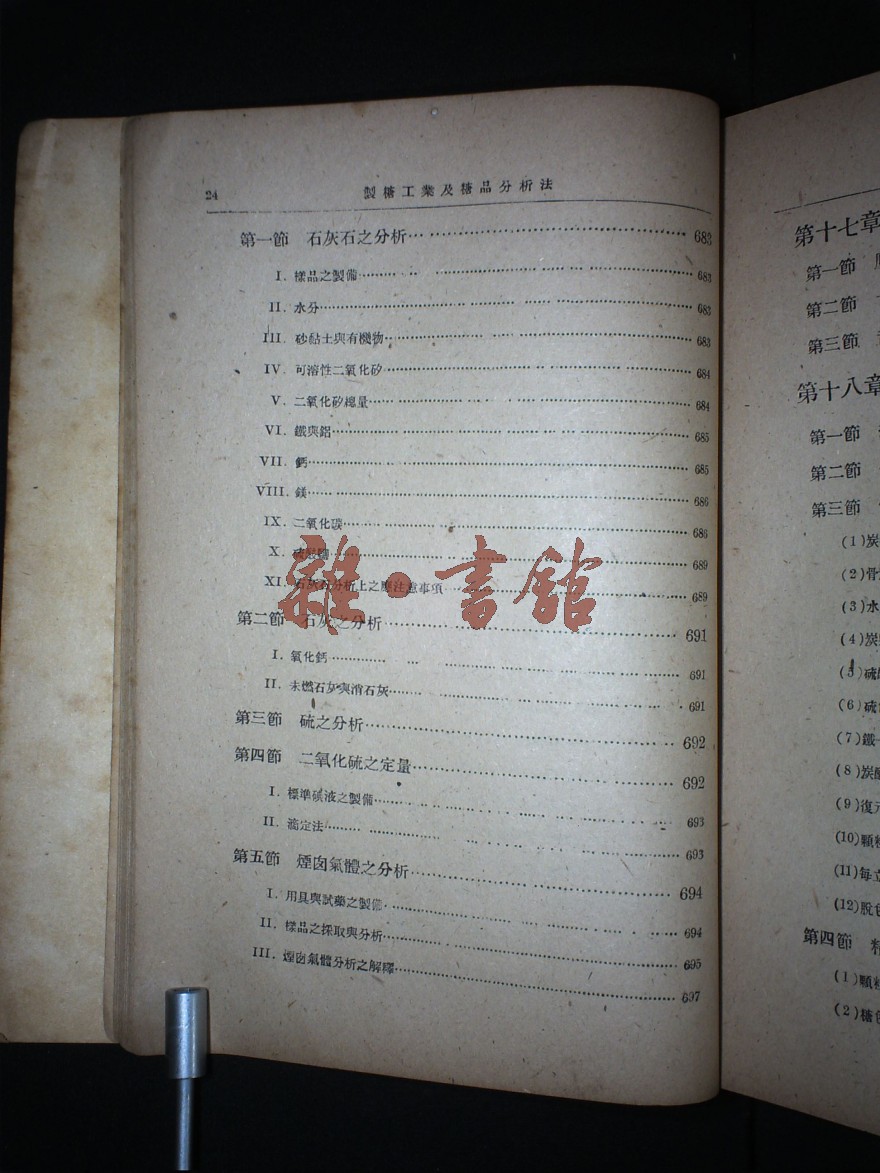 24 製糖工業及糖品分析法
第一節 石灰石之分析 683
I. 樣品之製備 683
II. 水分 683
III. 砂黏土與有機物 683
IV. 可溶性二氧化矽 684
V. 二氧化矽總量 684
VI. 鐵與鋁 685
VII. 鈣 685
VIII. 鎂 686
IX. 二氧化碳 686
X. 硫酸鹽 689
XI. 石灰石分析上之應注意事項 689
第二節 石灰之分析 691
I. 氧化鈣 691
II. 未燃石灰與消石灰 691
第三節 硫之分析 692
第四節 二氧化硫之定量 692
I. 標準碘液之製備 693
II. 滴定法 693
第五節 煙囱氣體之分析 694
I. 用具與試藥之製備 694
II. 樣品之採取與分析 695
III. 煙囱氣體分析之解釋 697
雜·書館
第十七章
第一節
第二節
第三節
第十八章
第一節
第二節
第三節
(1)炭
(2)骨
(3)水
(4)炭
(5)硫
(6)硫
(7)鐵
(8)炭
(9)復元
(10)顆
(11)每立
(12)脫色
第四節 精
(1)顆粒
(2)糖色